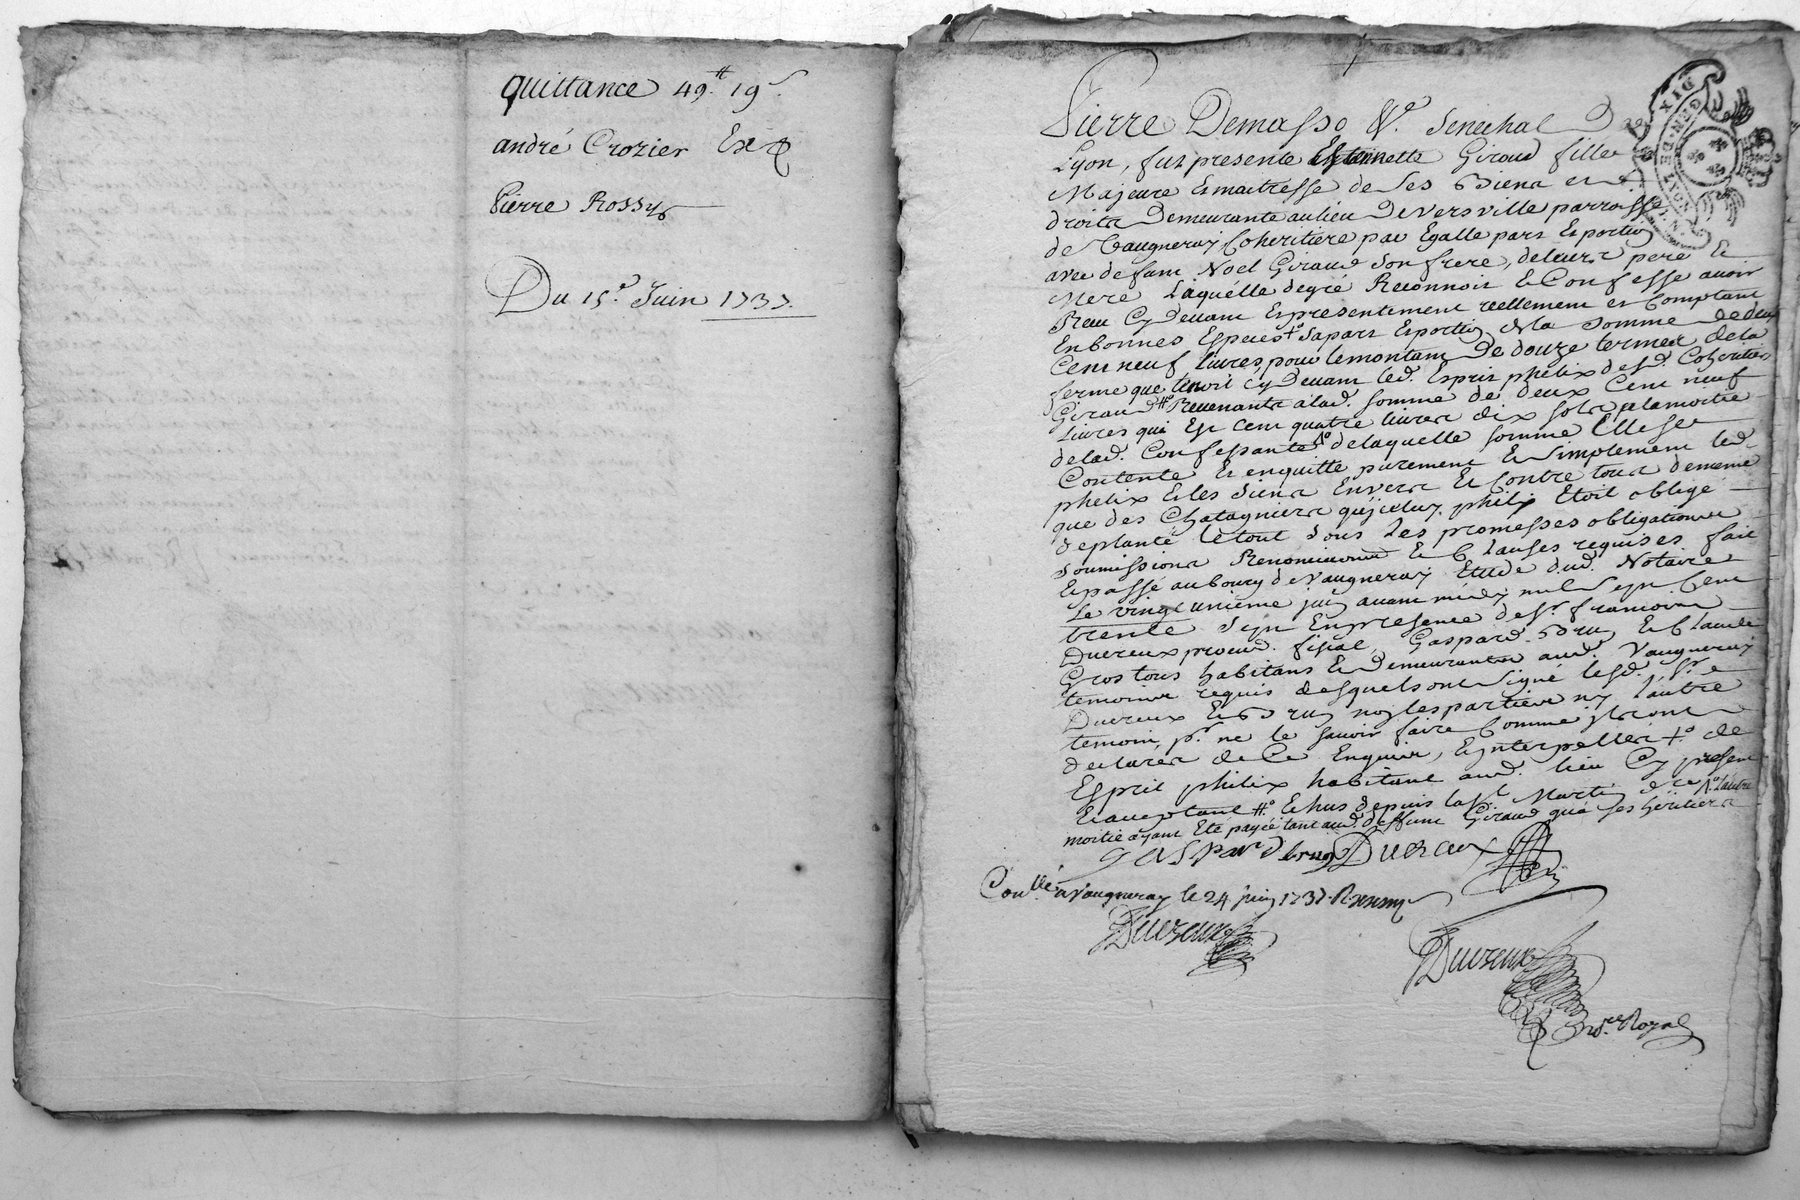 Quittance 49.tt 19s
andré Crozier Ex
Pierre Rossy
Du 15e Juin 1737.
DIX DEN.
GEN. DE LYON
Pierre Demasso &a. Senechal D
Lyon, fut presente Estiennette Giroud fille
Majeure Et maitresse de Ses Biens et
droits Demeurante au lieu De versville parroisse
de Vaugneray Coheritiere par Egalle part Et portion
avec defunt Noel Giraud Son frere, de leurs pere Et
Mere Laquelle de gré Reconnoit Et Confesse avoir
Receu Cy Devant Et presentement reellement et Comptant
En bonnes Especes +o Sa part Et portion De la Somme De deux
Cent neuf livres, pour le montant De douze termes de la
ferme que tenoit Cy Devant led. Esprit phelix desd. Coheritiers
Giraud #o Revenants a lad. Somme de deux Cent neuf
Livres qui Est Cent quatre livres dix sols pr la moitié
de lad. Confessante Ao de laquelle Somme Elle Se
Contente Et en quitte purement Et Simplement led.
phelix Et les Siens Envers Et Contre tous de meme
que des Chatagniers qu'jceluy philix Etoit obligé
de planté le tout Sous les promesses obligations
Soumissions Renonciations Et Clauses requises fait
Et passé au bourg de Vaugneray Etude dud. Notaire
Le vingt unième juin avant midy mil Sept Cent
trente Sept En presence de Sr. françois
Ducreux procur. fiscal, Gaspard Bruy Et Claude
Gros tous habitans Et Demeurants aud. Vaugneray
temoins requis desquels ont Signé lesd. Sr.
Ducreux Et Bruy non les parties ny l'autre
temoin, pr. ne le Sçavoir faire Comme jls ont
declarer de Ce Enquis, Et jnterpellés +o de
Esprit philix habitant aud. lieu Cy present
Et acceptant #o Echus depuis la St. Martin Ao l'autre
moitié ayant Eté payée tant aud. deffunt Giraud que Ses heritiers
gaspard bruy Ducreux
Conllé a Vaugneray le 24 juin 1737. R
Ducreux
Ducreux
Nore. Royal